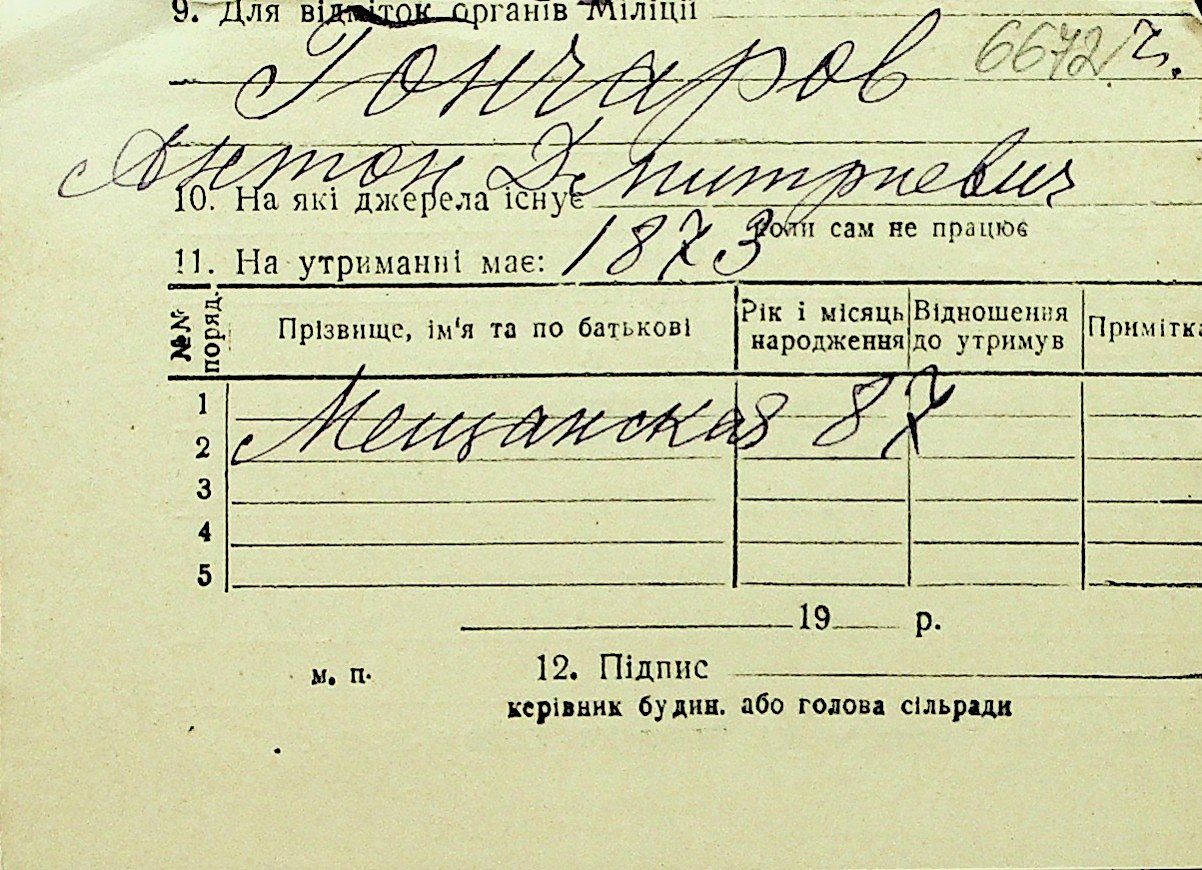 9. Для відміток органів Міліції
Гончаров 6672 г.
Антон Дмитриевич
10. На які джерела існує
коли сам не працює
11. На утриманні має: 1873
№№ поряд. Прізвище, ім'я та по батькові Рік і місяць народження Відношення до утримув Примітка
1
Мещанская 87
2
3
4
5
19 р.
м. п. 12. Підпис
керівник будин. або голова сільради